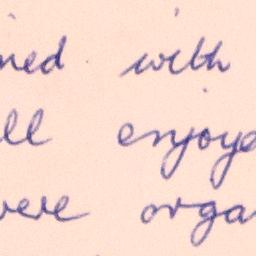 ned with
ll enjoye
vere orga